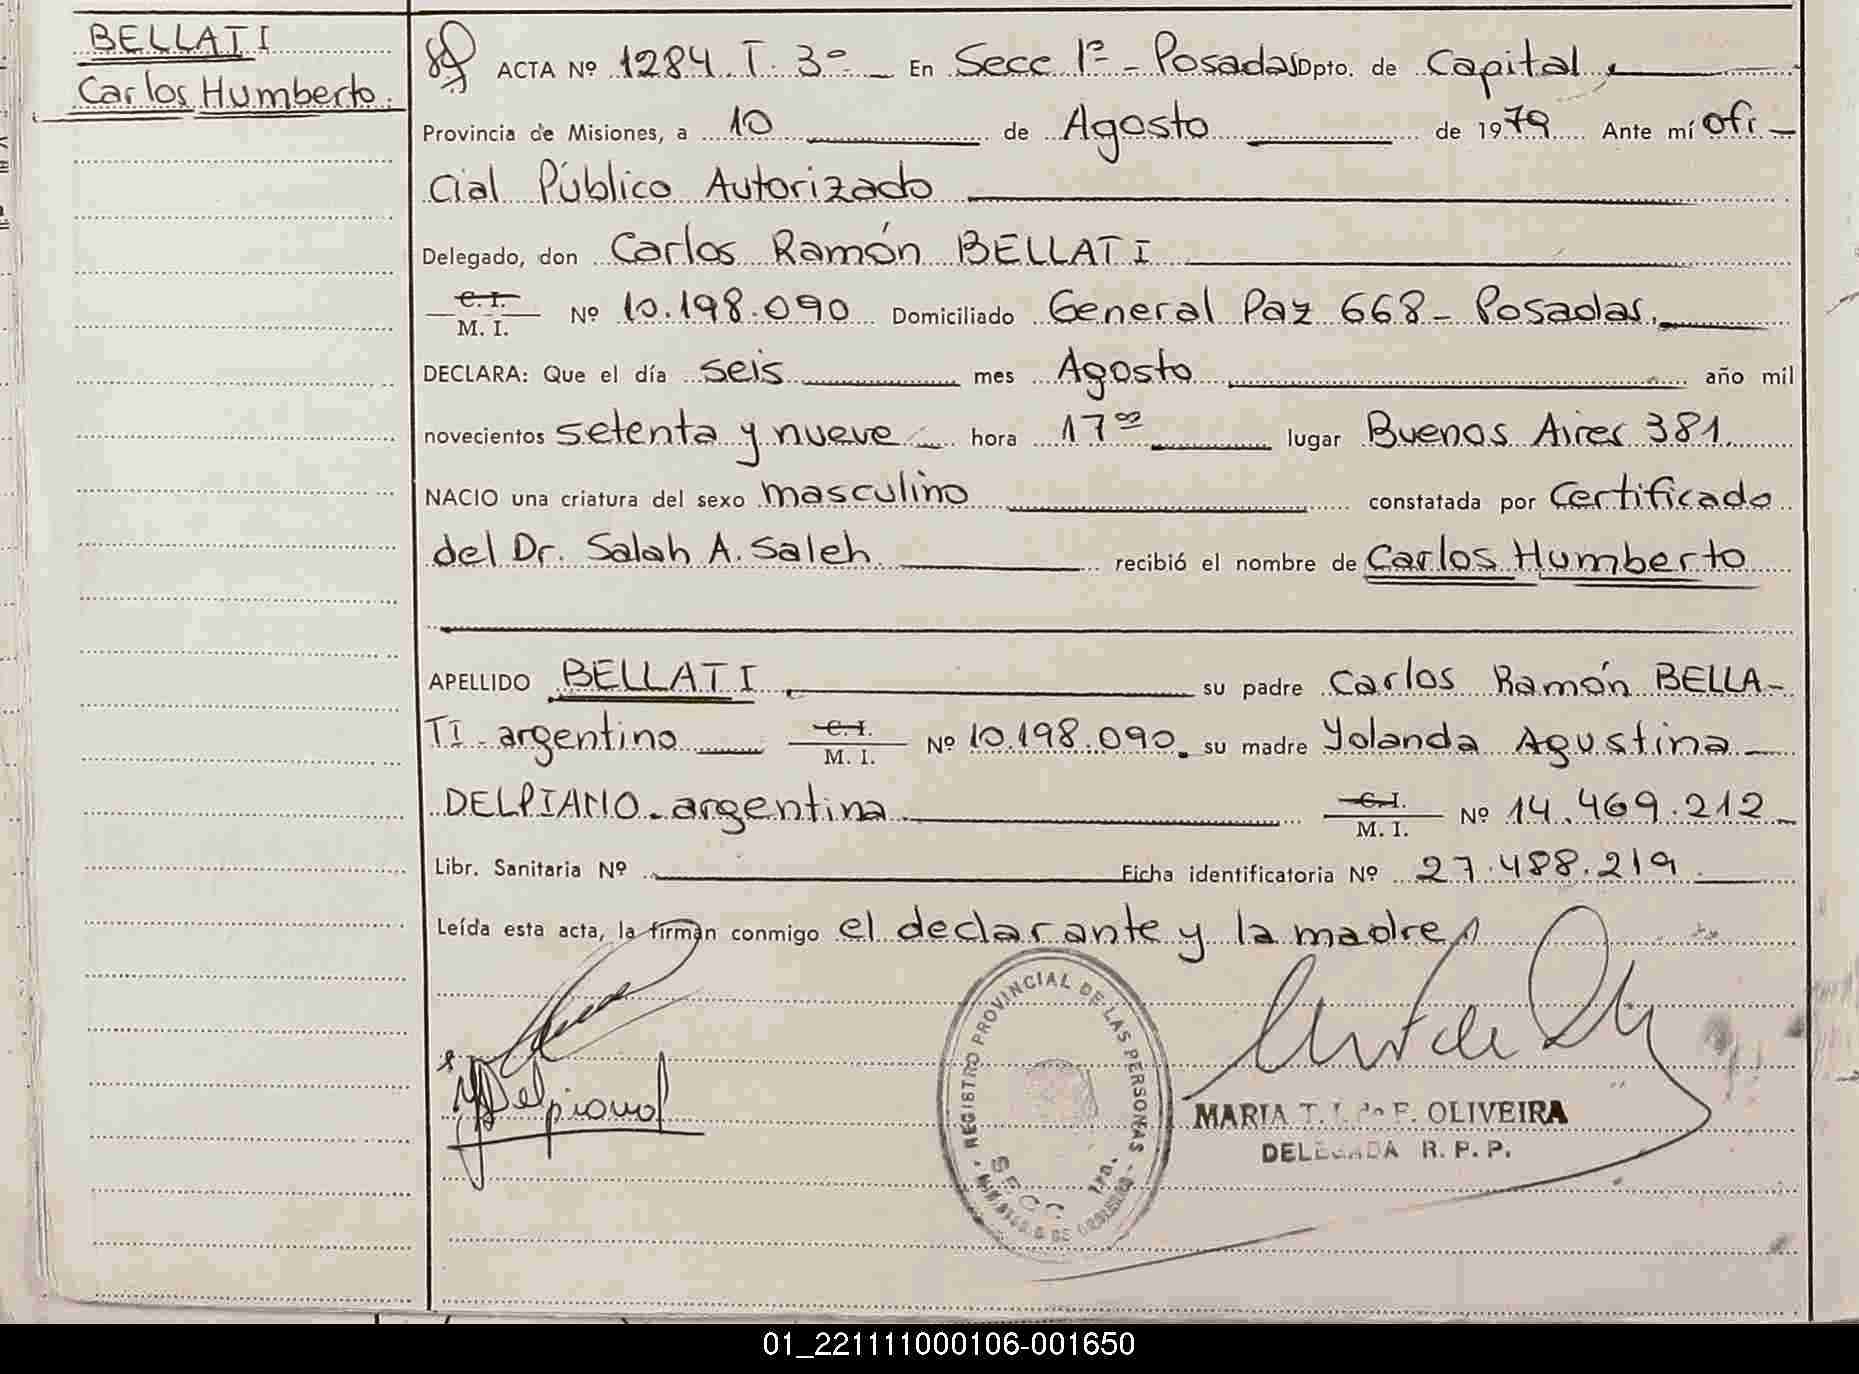 BELLATI
Carlos Humberto.
ACTA Nº 1284. T. 3º En Secc 1ª - Posadas Dpto. de Capital,
Provincia de Misiones, a 10 de Agosto de 1979 Ante mí ofi-
cial Público Autorizado
Delegado, don Carlos Ramón BELLATI
C. I.
M. I. Nº 10.198.090 Domiciliado General Paz 668 - Posadas.
DECLARA: Que el día seis mes Agosto año mil
novecientos setenta y nueve hora 17 00 lugar Buenos Aires 381
NACIO una criatura del sexo masculino constatada por Certificado
del Dr. Salah A. Saleh recibió el nombre de Carlos Humberto
APELLIDO BELLATI su padre Carlos Ramón BELLA-
TI - argentino C. I. M. I. Nº 10.198.090. su madre Yolanda Agustina
DELPIANO - argentina C. I. M. I. Nº 14.469.212
Libr. Sanitaria Nº Ficha identificatoria Nº 27.488.219
Leída esta acta, la firman conmigo el declarante y la madre
Y Delpiano
REGISTRO PROVINCIAL DE LAS PERSONAS
SECC 1ra.
MINISTERIO DE GOBIERNO
MARIA T. de F. OLIVEIRA
DELEGADA R. P. P.
01_221111000106-001650